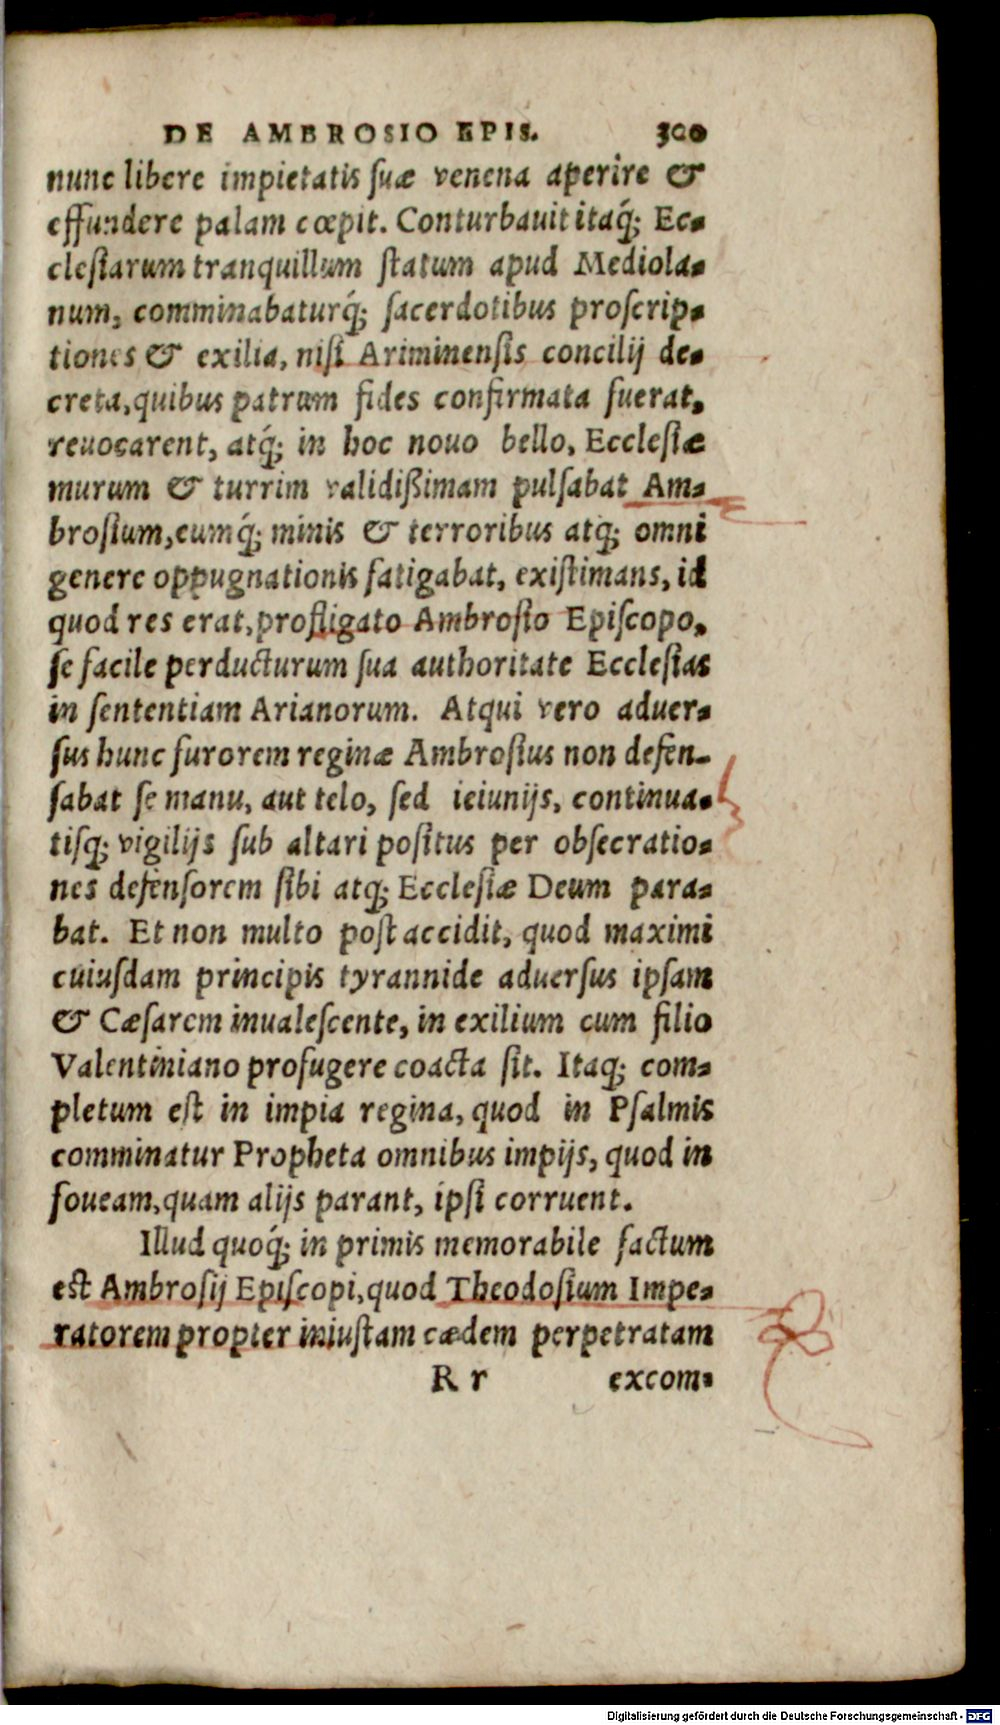 DE AMBROSIO EPIS. 300
nunc libere impietatis suæ venena aperire &
effundere palam cœpit. Conturbauit itaq́; Ec-
clesiarum tranquillum statum apud Mediola-
num, comminabaturq́; sacerdotibus proscrip-
tiones & exilia, nisi Ariminensis concilij de-
creta, quibus patrum fides confirmata fuerat,
reuocarent, atq́; in hoc nouo bello, Ecclesiæ
murum & turrim validißimam pulsabat Am-
brosium, eumq́; minis & terroribus atq; omni
genere oppugnationis fatigabat, existimans, id
quod res erat, profligato Ambrosio Episcopo,
se facile perducturum sua authoritate Ecclesias
in sententiam Arianorum. Atqui vero aduer-
sus hunc furorem reginæ Ambrosius non defen-
sabat se manu, aut telo, sed ieiunijs, continua-
tisq; vigilijs sub altari positus per obsecratio-
nes defensorem sibi atq; Ecclesiæ Deum para-
bat. Et non multo post accidit, quod maximi
cuiusdam principis tyrannide aduersus ipsam
& Cæsarem inualescente, in exilium cum filio
Valentiniano profugere coacta sit. Itaq; com-
pletum est in impia regina, quod in Psalmis
comminatur Propheta omnibus impijs, quod in
foueam, quam alijs parant, ipsi corruent.
Illud quoq́; in primis memorabile factum
est Ambrosij Episcopi, quod Theodosium Impe-
ratorem propter iniustam cædem perpetratam
R r excom-
Digitalisierung gefördert durch die Deutsche Forschungsgemeinschaft - DFG